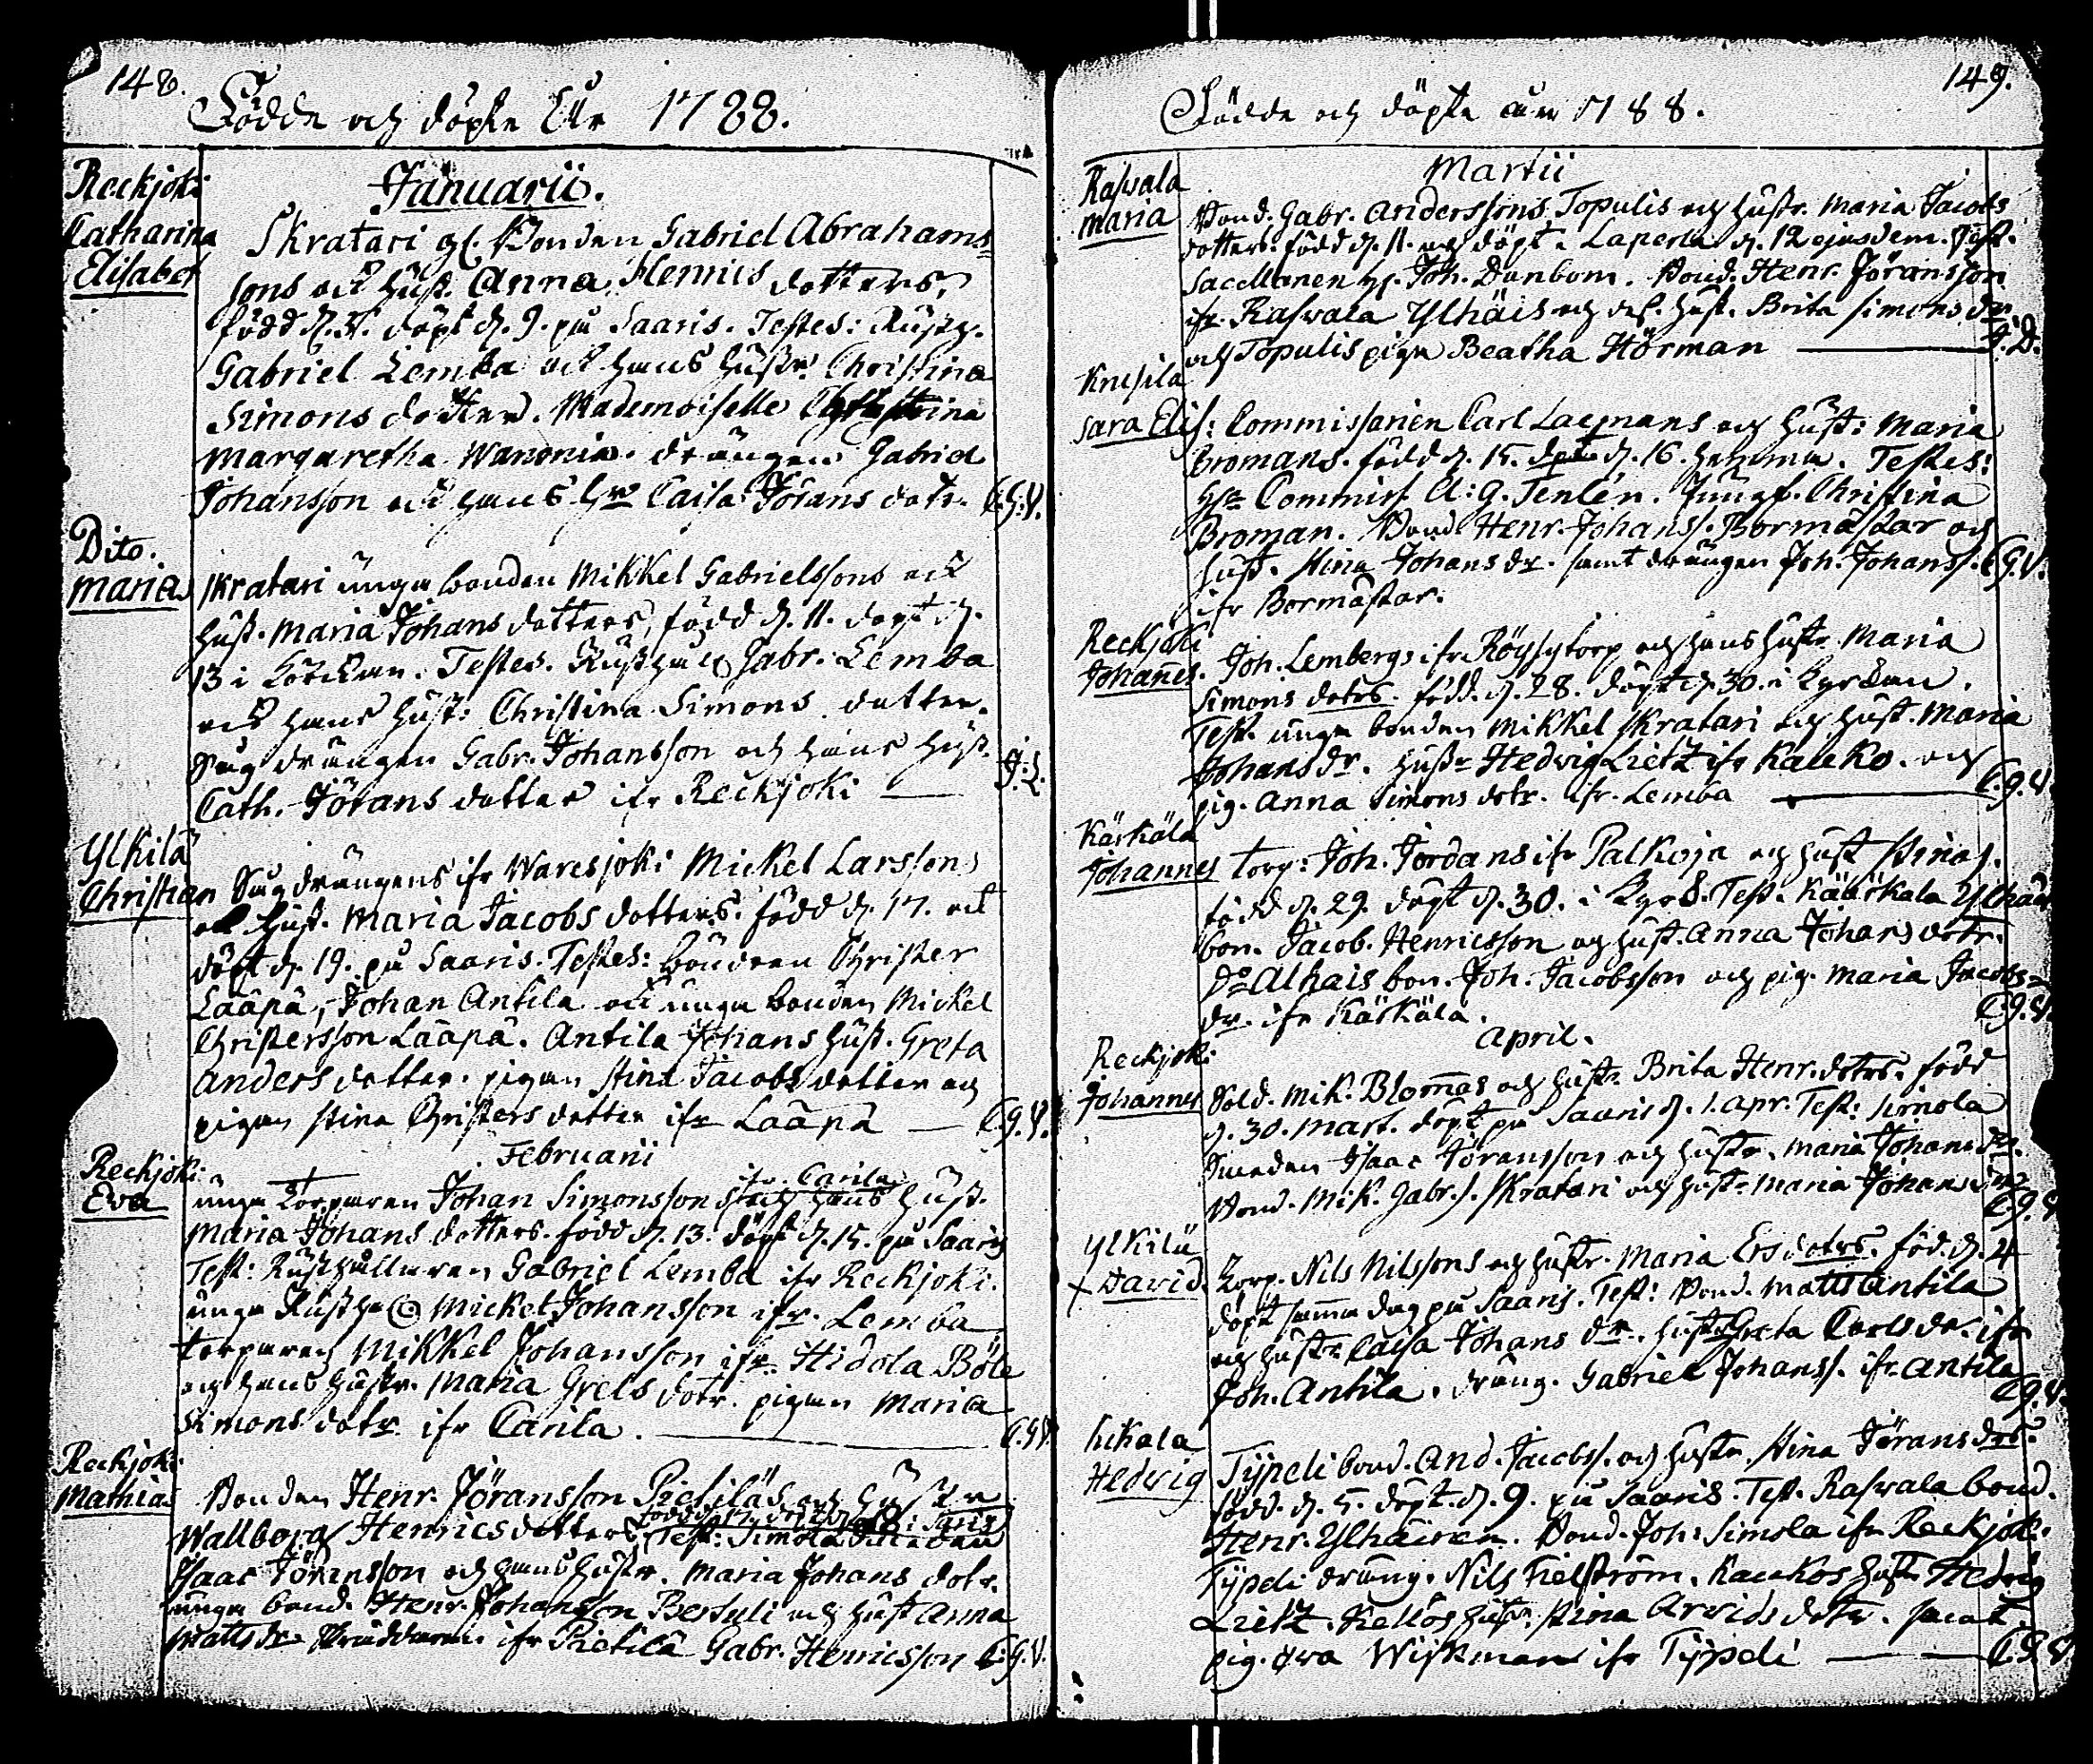 148.
Födde och döpte År 1788.
Januarii.
Reckjoki
Catharina
Elisabet
Skratari gl. Bonden Gabriel Abrahams
sons och Hust. Anna Henrics dotters,
född d. 5. döpt d. 9. på Saaris. Testes: Rusth.
Gabriel Lemba och hans hustr. Christina
Simons dotter. Mademoiselle Christina
Margaretha Wanonia. drängen Gabriel
Johansson och hans h:u Caisa Jörans dotr. C.G.V.
Dito.
Maria
Skratari unga bonden Mikkel Gabrielssons och
hust. Maria Johans dotters, född d. 11. döpt d.
13 i Kyrckan. Testes. Rusthåll. Gabr. Lemba
och hans hust: Christina Simons dotter.
Såg drängen Gabr. Johansson och hans hust.
Cath. Jörans dotter ifr Reckjoki — J.L.
Ylkilä
Christian
Såg drängens ifr Waresjoki Mickel Larssons
och Hust. Maria Jacobs dotters. född d. 17. och
döpt d. 19. på Saaris. Testes: bonden Christer
Lääpä, Johan Antila och unga bonden Mickel
Christersson Lääpä. Antila Johans hust. Greta
Anders dotter. pigan Stina Jacobs dotter och
pigan Stina Christers dotter ifr Lääpä — C.G.V.
Februarii
Reckjoki
Eva
ifr. Canila
unga Torparen Johan Simonssons och hans hust.
Maria Johans dotters. född d. 13. döpt d. 15. på Saaris
Test: Rusthållaren Gabriel Lemba ifr Reckjoki.
unga Rustha Mickel Johansson ifr. Lemba
torparen Mikkel Johansson ifr. Hidola Böle
och hans hustr. Maria Grels dotr. pigan Maria
Simons dotr ifr Canla. — C.G.V.
Reckjoki
Mathias
Bonden Henr. Jöransson Pietiläs och Hustr
Wallborg Henrics dotters. Test: Simola Smeden
Isaac Jöransson och hans hustr. Maria Johans dotr.
unga bond. Henr. Johansson Bertuli och hust Anna
Matts dr Skräddaren ifr Pietilä Gabr. Henricsson C.G.V.
149.
Födde och döpte åhr 1788.
Martii
Raswala
Maria
Bond. Gabr. Anderssons Topulis och hustr. Maria Jacobs
dotters. född d. 11. och döpt i Laperla d. 12 ejusdem. Test.
Sacellanen H. Joh. Danbom. Bond. Henr. Jöransson
ifr. Raswala Ylhäis och des. hust. Brita Simons dr.
och Topulis piga Beatha Hörman — J.D.
Knusila
Sara Elis:
Commissarien Carl Lagmans och Hust: Maria
Bromans. född d. 15. döpt d. 16. hemma. Testes:
Hr Commiss. A: G. Tenlén. Jungf. Christina
Broman. Bond Henr. Johanss. Bormästar och
hust. Stina Johans dr. samt drängen Joh. Johanss. C.G.V.
ifr Bormästar.
Reckjoki
Johannes.
Joh. Lembergs ifr. Röysytorp och hans hustr. Maria
Simons dotrs. född. d. 28. döpt d. 30. i Kyrckan.
Test. unga bonden Mikkel Skratari och hust. Maria
Johans dr. hustr Hedvig Lietz ifr Kauko. och
pig. Anna Simons dotr. ifr. Lemba — C.G.V.
Kärkälä
Johannes
torp: Joh. Jordans ifr Palkoja och hust Stinas.
född d. 29. döpt d. 30. i Kyrck. Test. Käkökala Ylhäis
bon. Jacob. Henricsson och hust. Anna Johans dotr.
Do Alhais bon. Joh. Jacobsson och pig. Maria Jacobs
dr. ifr Kärkälä. C.G.V.
April.
Reckjoki
Johannes
Sold. Mik. Blomas och hustr Brita Henr. dotrs. född
d. 30. Mart. döpt på Saaris d. 1. Apr. Test: Simola
Smeden Isaac Jöransson och hustr. Maria Johans dr.
Bond. Mik. Gabr. s. Skratari och hustr Maria Johans dr. C.G.V.
Ylkilä
+ David.
Torp. Nils Nilssons och hustr. Maria Ers dotrs. föd. d. 4
döpt samma dag på Saaris. Test: Bond. Matts Antila
och hustr Caisa Johans dr. hustr Greta Carls dr. ifr
Joh. Antila. dräng. Gabriel Johanss. ifr. Antila C.G.V.
Kikala
Hedvig
Tÿpeli bond. And. Jacobss. och hustr. Stina Jörans drs.
född. d. 5. döpt. d. 9. på Saaris. Test. Raswala bond.
Henr. Ylhäinen. Bond. Joh. Simola ifr Reckjoki.
Tÿpeli dräng. Nils Fielström. Kaukos hustr Hedvig
Lietz. Kellos hustr. Stina Arvids dotr. samt
pig. Eva Wijkman ifr Tÿpeli — C.G.V.